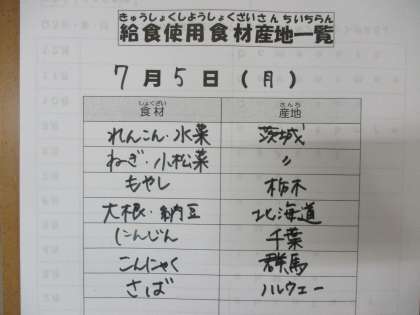 きゅうしょくしようしょくざいさんちいちらん
給食使用食材産地一覧
7月5日(月)
しょくざい さんち
食材 産地
れんこん・水菜 茨城
ねぎ・小松菜 〃
もやし 栃木
大根・納豆 北海道
にんじん 千葉
こんにゃく 群馬
さば ノルウェー